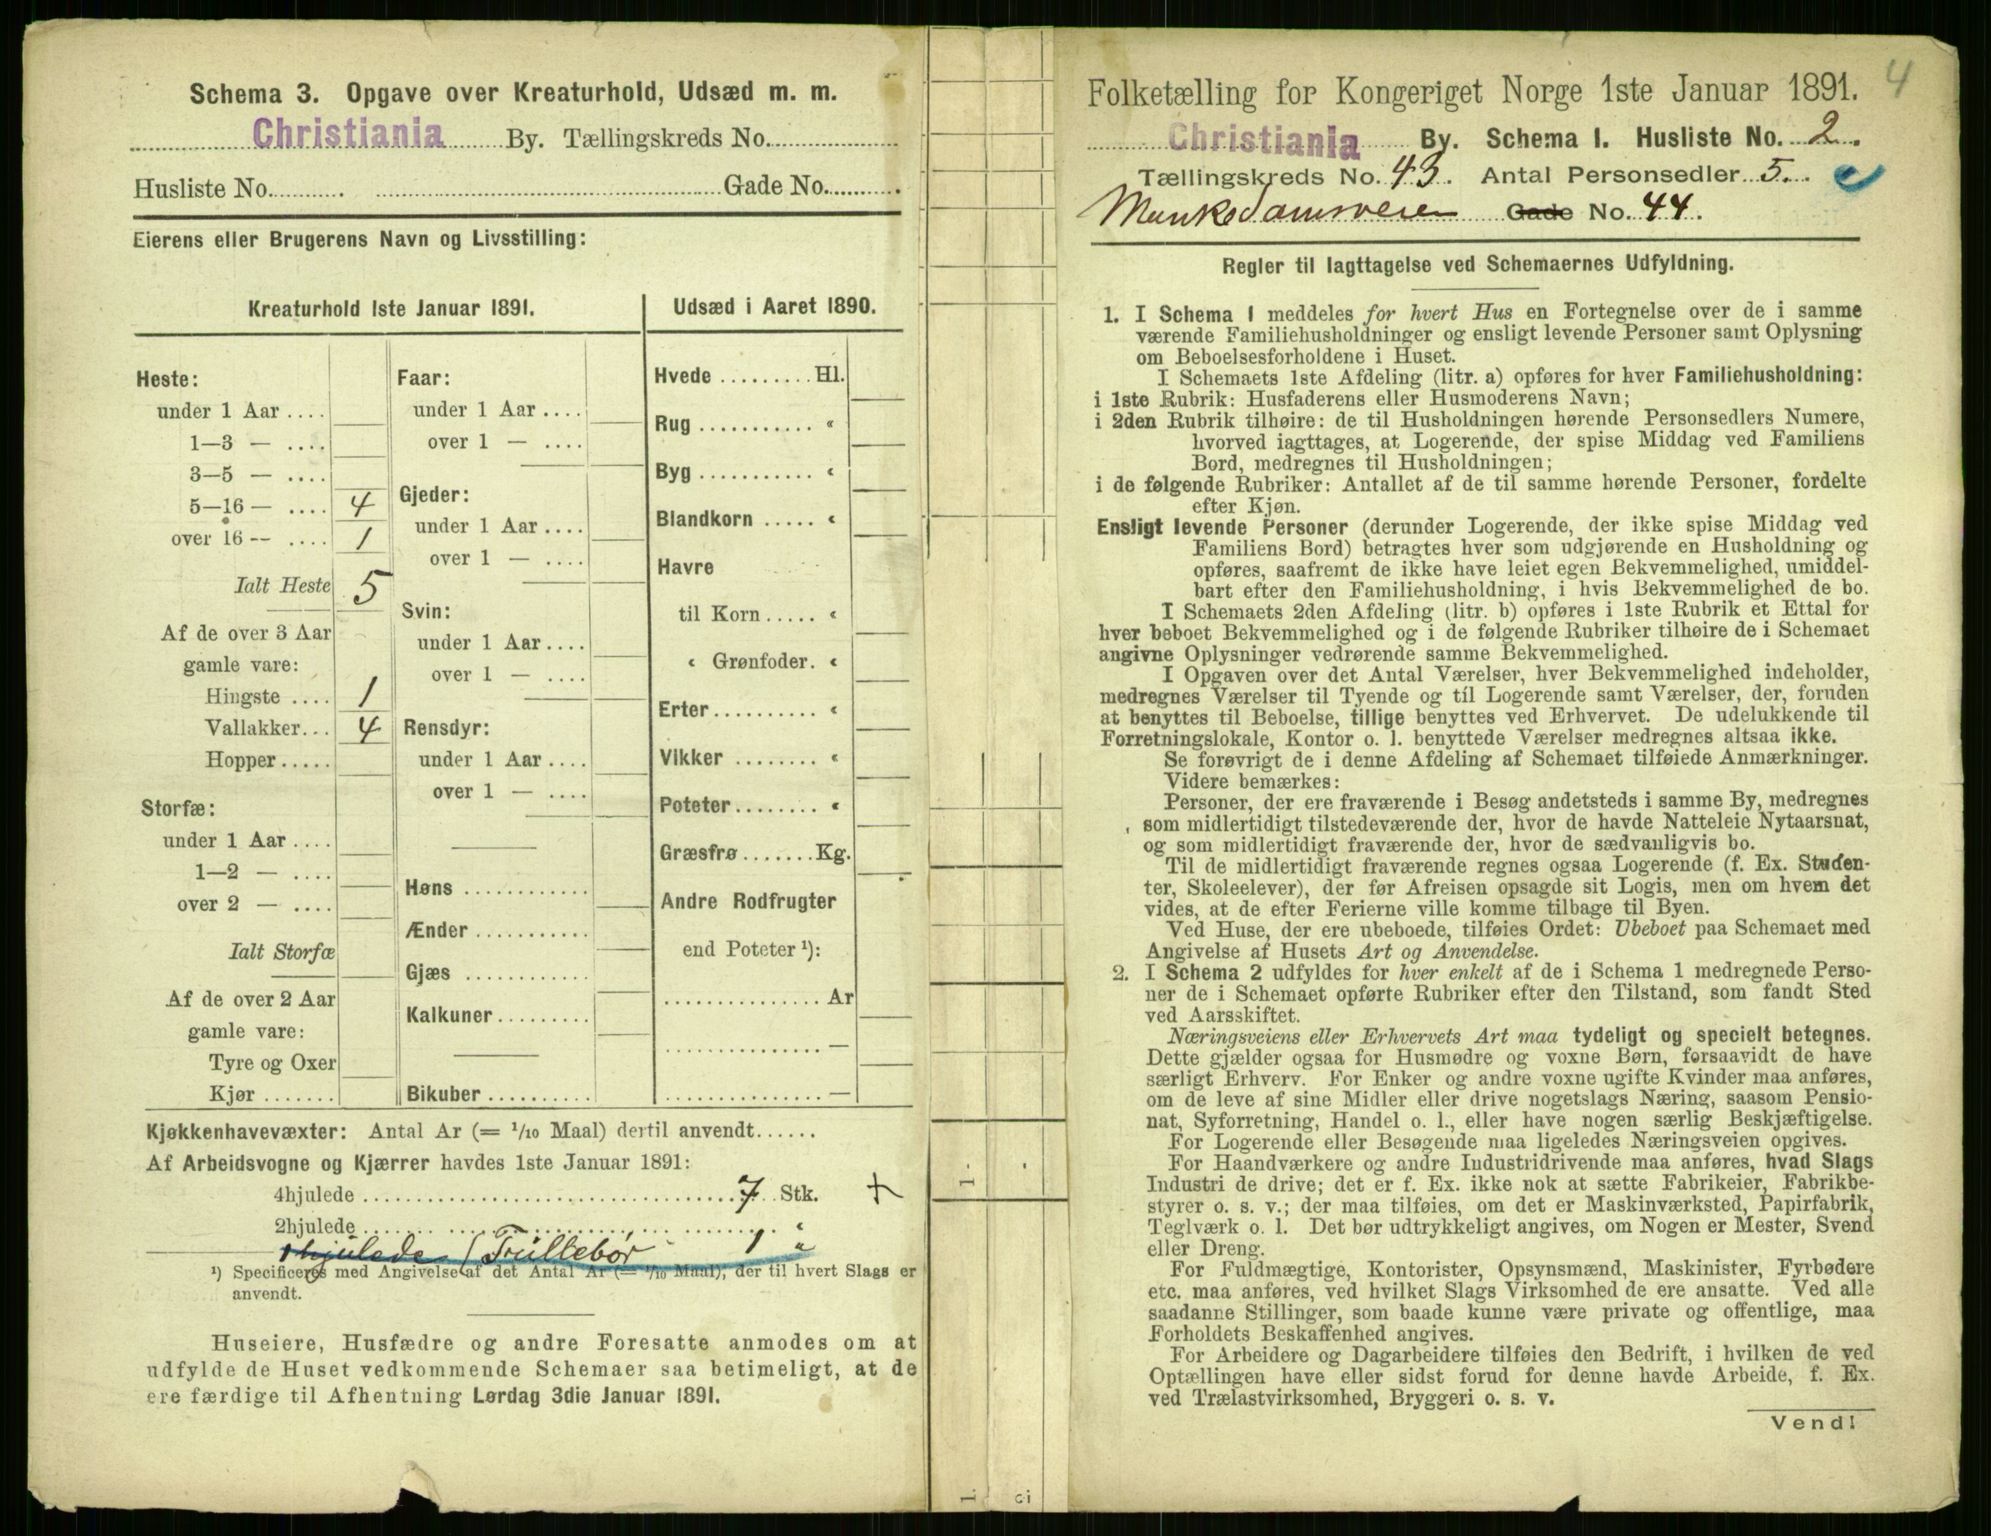 Schema 3. Opgave over Kreaturhold, Udsæd m. m.
Christiania By. Tællingskreds No.
Husliste No. Gade No.
Eierens eller Brugerens Navn og Livsstilling:
Kreaturhold 1ste Januar 1891.
Heste:
under 1 Aar ....
1—3 — ....
3—5 — ....
5—16 — .... 4
over 16 -- .... 1
Ialt Heste 5
Af de over 3 Aar
gamle vare:
Hingste .... 1
Vallakker... 4
Hopper.....
Storfæ:
under 1 Aar ....
1—2 — ....
over 2 — ....
Ialt Storfæ
Af de over 2 Aar
gamle vare:
Tyre og Oxer
Kjør .......
Faar:
under 1 Aar ....
over 1 — ....
Gjeder:
under 1 Aar ....
over 1 — ....
Svin:
under 1 Aar ....
over 1 — ....
Rensdyr:
under 1 Aar ....
over 1 — ....
Høns ............
Ænder ...........
Gjæs ............
Kalkuner.........
Bikuber ..........
Udsæd i Aaret 1890.
Hvede .........Hl.
Rug ........... «
Byg ........... «
Blandkorn ..... «
Havre
til Korn ..... «
« Grønfoder. «
Erter.......... «
Vikker ........ «
Poteter ........ «
Græsfrø .......Kg.
Andre Rodfrugter
end Poteter ¹):
............... Ar
............... —
............... —
Kjøkkenhavevæxter: Antal Ar (= 1/10 Maal) dertil anvendt......
Af Arbeidsvogne og Kjærrer havdes 1ste Januar 1891:
4hjulede ........ 7 Stk. +
2hjulede ........ «
1hjulede / Trillebør 1 «
¹) Specificeres med Angivelse af det Antal Ar (= 1/10 Maal), der til hvert Slags er
anvendt.
Huseiere, Husfædre og andre Foresatte anmodes om at
udfylde de Huset vedkommende Schemaer saa betimeligt, at de
ere færdige til Afhentning Lørdag 3die Januar 1891.
1.
1.
4
Folketælling for Kongeriget Norge 1ste Januar 1891.
Christiania By. Schema 1. Husliste No. 2.
Tællingskreds No. 43. Antal Personsedler 5.
Munkedamsveien Gade No. 44.
Regler til Iagttagelse ved Schemaernes Udfyldning.
1. I Schema 1 meddeles for hvert Hus en Fortegnelse over de i samme
værende Familiehusholdninger og ensligt levende Personer samt Oplysning
om Beboelsesforholdene i Huset.
I Schemaets 1ste Afdeling (litr. a) opføres for hver Familiehusholdning:
i 1ste Rubrik: Husfaderens eller Husmoderens Navn;
i 2den Rubrik tilhøire: de til Husholdningen hørende Personsedlers Numere,
hvorved iagttages, at Logerende, der spise Middag ved Familiens
Bord, medregnes til Husholdningen;
i de følgende Rubriker: Antallet af de til samme hørende Personer, fordelte
efter Kjøn.
Ensligt levende Personer (derunder Logerende, der ikke spise Middag ved
Familiens Bord) betragtes hver som udgjørende en Husholdning og
opføres, saafremt de ikke have leiet egen Bekvemmelighed, umiddel-
bart efter den Familiehusholdning, i hvis Bekvemmelighed de bo.
I Schemaets 2den Afdeling (litr. b) opføres i 1ste Rubrik et Ettal for
hver beboet Bekvemmelighed og i de følgende Rubriker tilhøire de i Schemaet
angivne Oplysninger vedrørende samme Bekvemmelighed.
I Opgaven over det Antal Værelser, hver Bekvemmelighed indeholder,
medregnes Værelser til Tyende og til Logerende samt Værelser, der, foruden
at benyttes til Beboelse, tillige benyttes ved Erhvervet. De udelukkende til
Forretningslokale, Kontor o. l. benyttede Værelser medregnes altsaa ikke.
Se forøvrigt de i denne Afdeling af Schemaet tilføiede Anmærkninger.
Videre bemærkes:
Personer, der ere fraværende i Besøg andetsteds i samme By, medregnes
som midlertidigt tilstedeværende der, hvor de havde Natteleie Nytaarsnat,
og som midlertidigt fraværende der, hvor de sædvanligvis bo.
Til de midlertidigt fraværende regnes ogsaa Logerende (f. Ex. Studen-
ter, Skoleelever), der før Afreisen opsagde sit Logis, men om hvem det
vides, at de efter Ferierne ville komme tilbage til Byen.
Ved Huse, der ere ubeboede, tilføies Ordet: Ubeboet paa Schemaet med
Angivelse af Husets Art og Anvendelse.
2. I Schema 2 udfyldes for hver enkelt af de i Schema 1 medregnede Perso-
ner de i Schemaet opførte Rubriker efter den Tilstand, som fandt Sted
ved Aarsskiftet.
Næringsveiens eller Erhvervets Art maa tydeligt og specielt betegnes.
Dette gjælder ogsaa for Husmødre og voxne Børn, forsaavidt de have
særligt Erhverv. For Enker og andre voxne ugifte Kvinder maa anføres,
om de leve af sine Midler eller drive nogetslags Næring, saasom Pensio-
nat, Syforretning, Handel o. l., eller have nogen særlig Beskjæftigelse.
For Logerende eller Besøgende maa ligeledes Næringsveien opgives.
For Haandværkere og andre Industridrivende maa anføres, hvad Slags
Industri de drive; det er f. Ex. ikke nok at sætte Fabrikeier, Fabrikbe-
styrer o. s. v.; der maa tilføies, om det er Maskinværksted, Papirfabrik,
Teglværk o. l. Det bør udtrykkeligt angives, om Nogen er Mester, Svend
eller Dreng.
For Fuldmægtige, Kontorister, Opsynsmænd, Maskinister, Fyrbødere
etc. maa anføres, ved hvilket Slags Virksomhed de ere ansatte. Ved alle
saadanne Stillinger, som baade kunne være private og offentlige, maa
Forholdets Beskaffenhed angives.
For Arbeidere og Dagarbeidere tilføies den Bedrift, i hvilken de ved
Optællingen have eller sidst forud for denne havde Arbeide, f. Ex.
ved Trælastvirksomhed, Bryggeri o. s. v.
Vend!